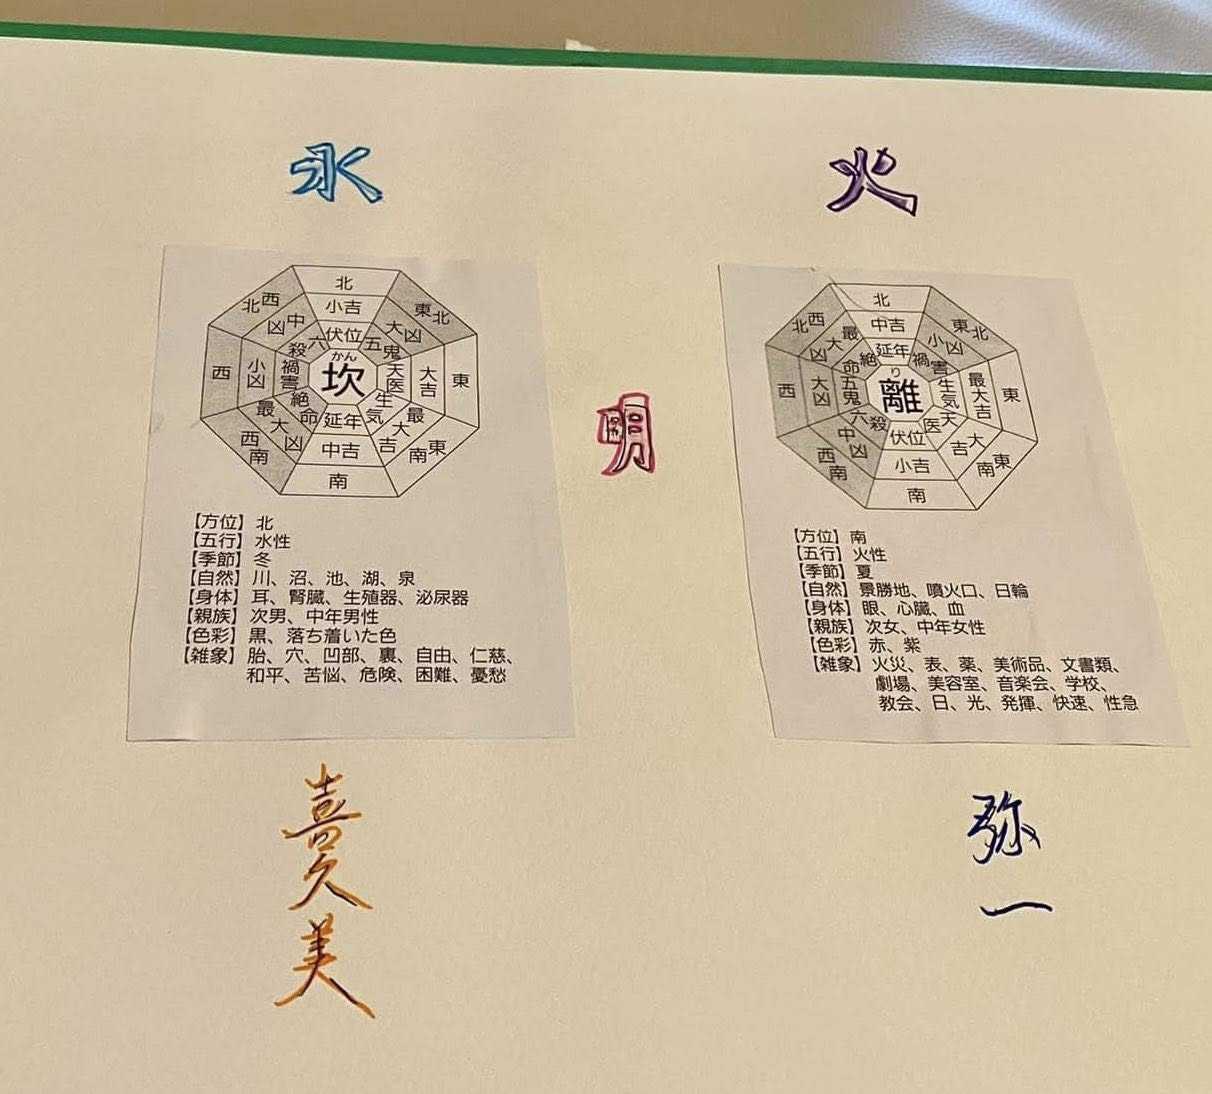 水
火
明
北
小吉
伏位
東北
大凶
五鬼
東
大吉
天医
東南
最大吉
生気
南
中吉
延年
西南
最大凶
絶命
西
小凶
禍害
北西
中凶
六殺
かん
坎
【方位】北
【五行】水性
【季節】冬
【自然】川、沼、池、湖、泉
【身体】耳、腎臓、生殖器、泌尿器
【親族】次男、中年男性
【色彩】黒、落ち着いた色
【雑象】胎、穴、凹部、裏、自由、仁慈、
和平、苦悩、危険、困難、憂愁
北
中吉
延年
東北
小凶
禍害
東
最大吉
生気
東南
大吉
天医
南
小吉
伏位
西南
中凶
六殺
西
大凶
五鬼
北西
最大凶
絶命
り
離
【方位】南
【五行】火性
【季節】夏
【自然】景勝地、噴火口、日輪
【身体】眼、心臓、血
【親族】次女、中年女性
【色彩】赤、紫
【雑象】火災、表、薬、美術品、文書類、
劇場、美容室、音楽会、学校、
教会、日、光、発揮、快速、性急
喜久美
弥一